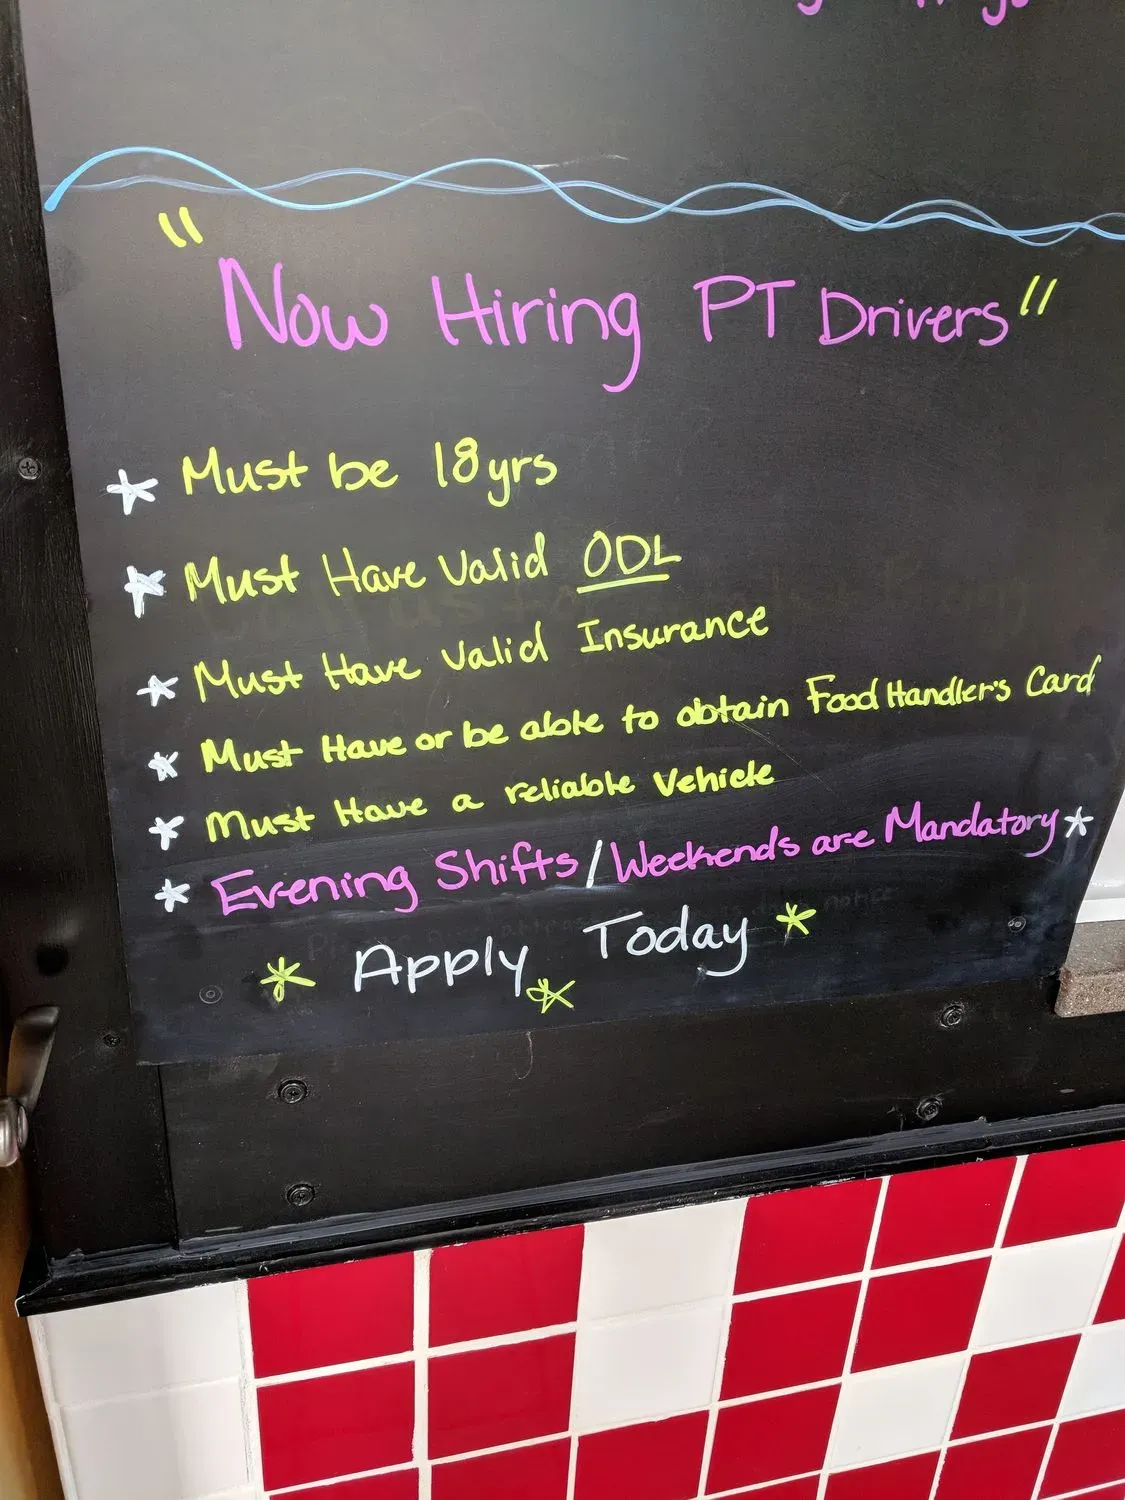 "Now Hiring PT Drivers"
* Must be 18yrs
* Must Have Valid ODL
* Must Have Valid Insurance
* Must Have or be able to obtain Food Handler's Card
* Must Have a reliable Vehicle
* Evening Shifts/Weekends are Mandatory *
* Apply * Today *